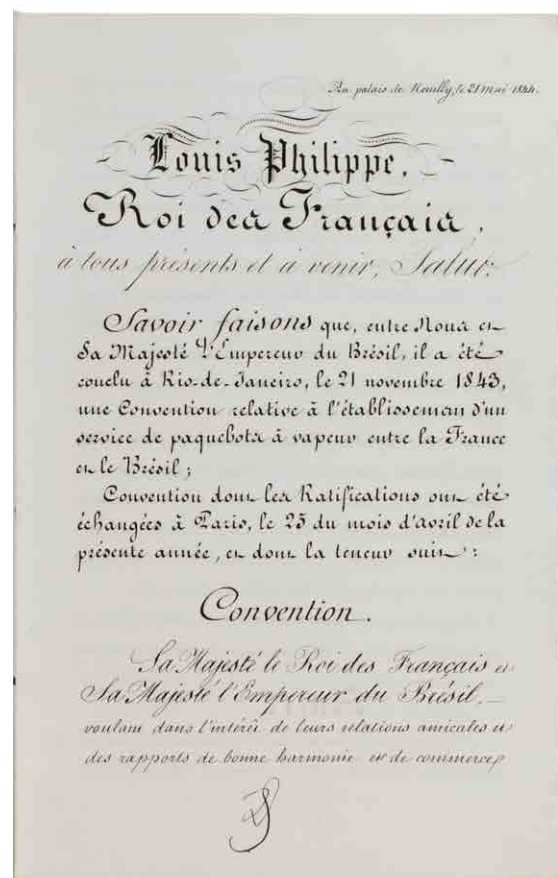 Au palais de Neuilly, le 21 mai 1844.
Louis Philippe,
Roi des Français,
à tous présents et à venir, Salut:
Savoir faisons que, entre Nous et
Sa Majesté l'Empereur du Brésil, il a été
conclu à Rio-de-Janeiro, le 21 novembre 1843,
une Convention relative à l'établissement d'un
service de paquebots à vapeur entre la France
et le Brésil;
Convention dont les Ratifications ont été
échangées à Paris, le 25 du mois d'avril de la
présente année, et dont la teneur suit:
Convention.
Sa Majesté le Roi des Français et
Sa Majesté l'Empereur du Brésil,
voulant dans l'intérêt de leurs relations amicales et
des rapports de bonne harmonie et de commerce,